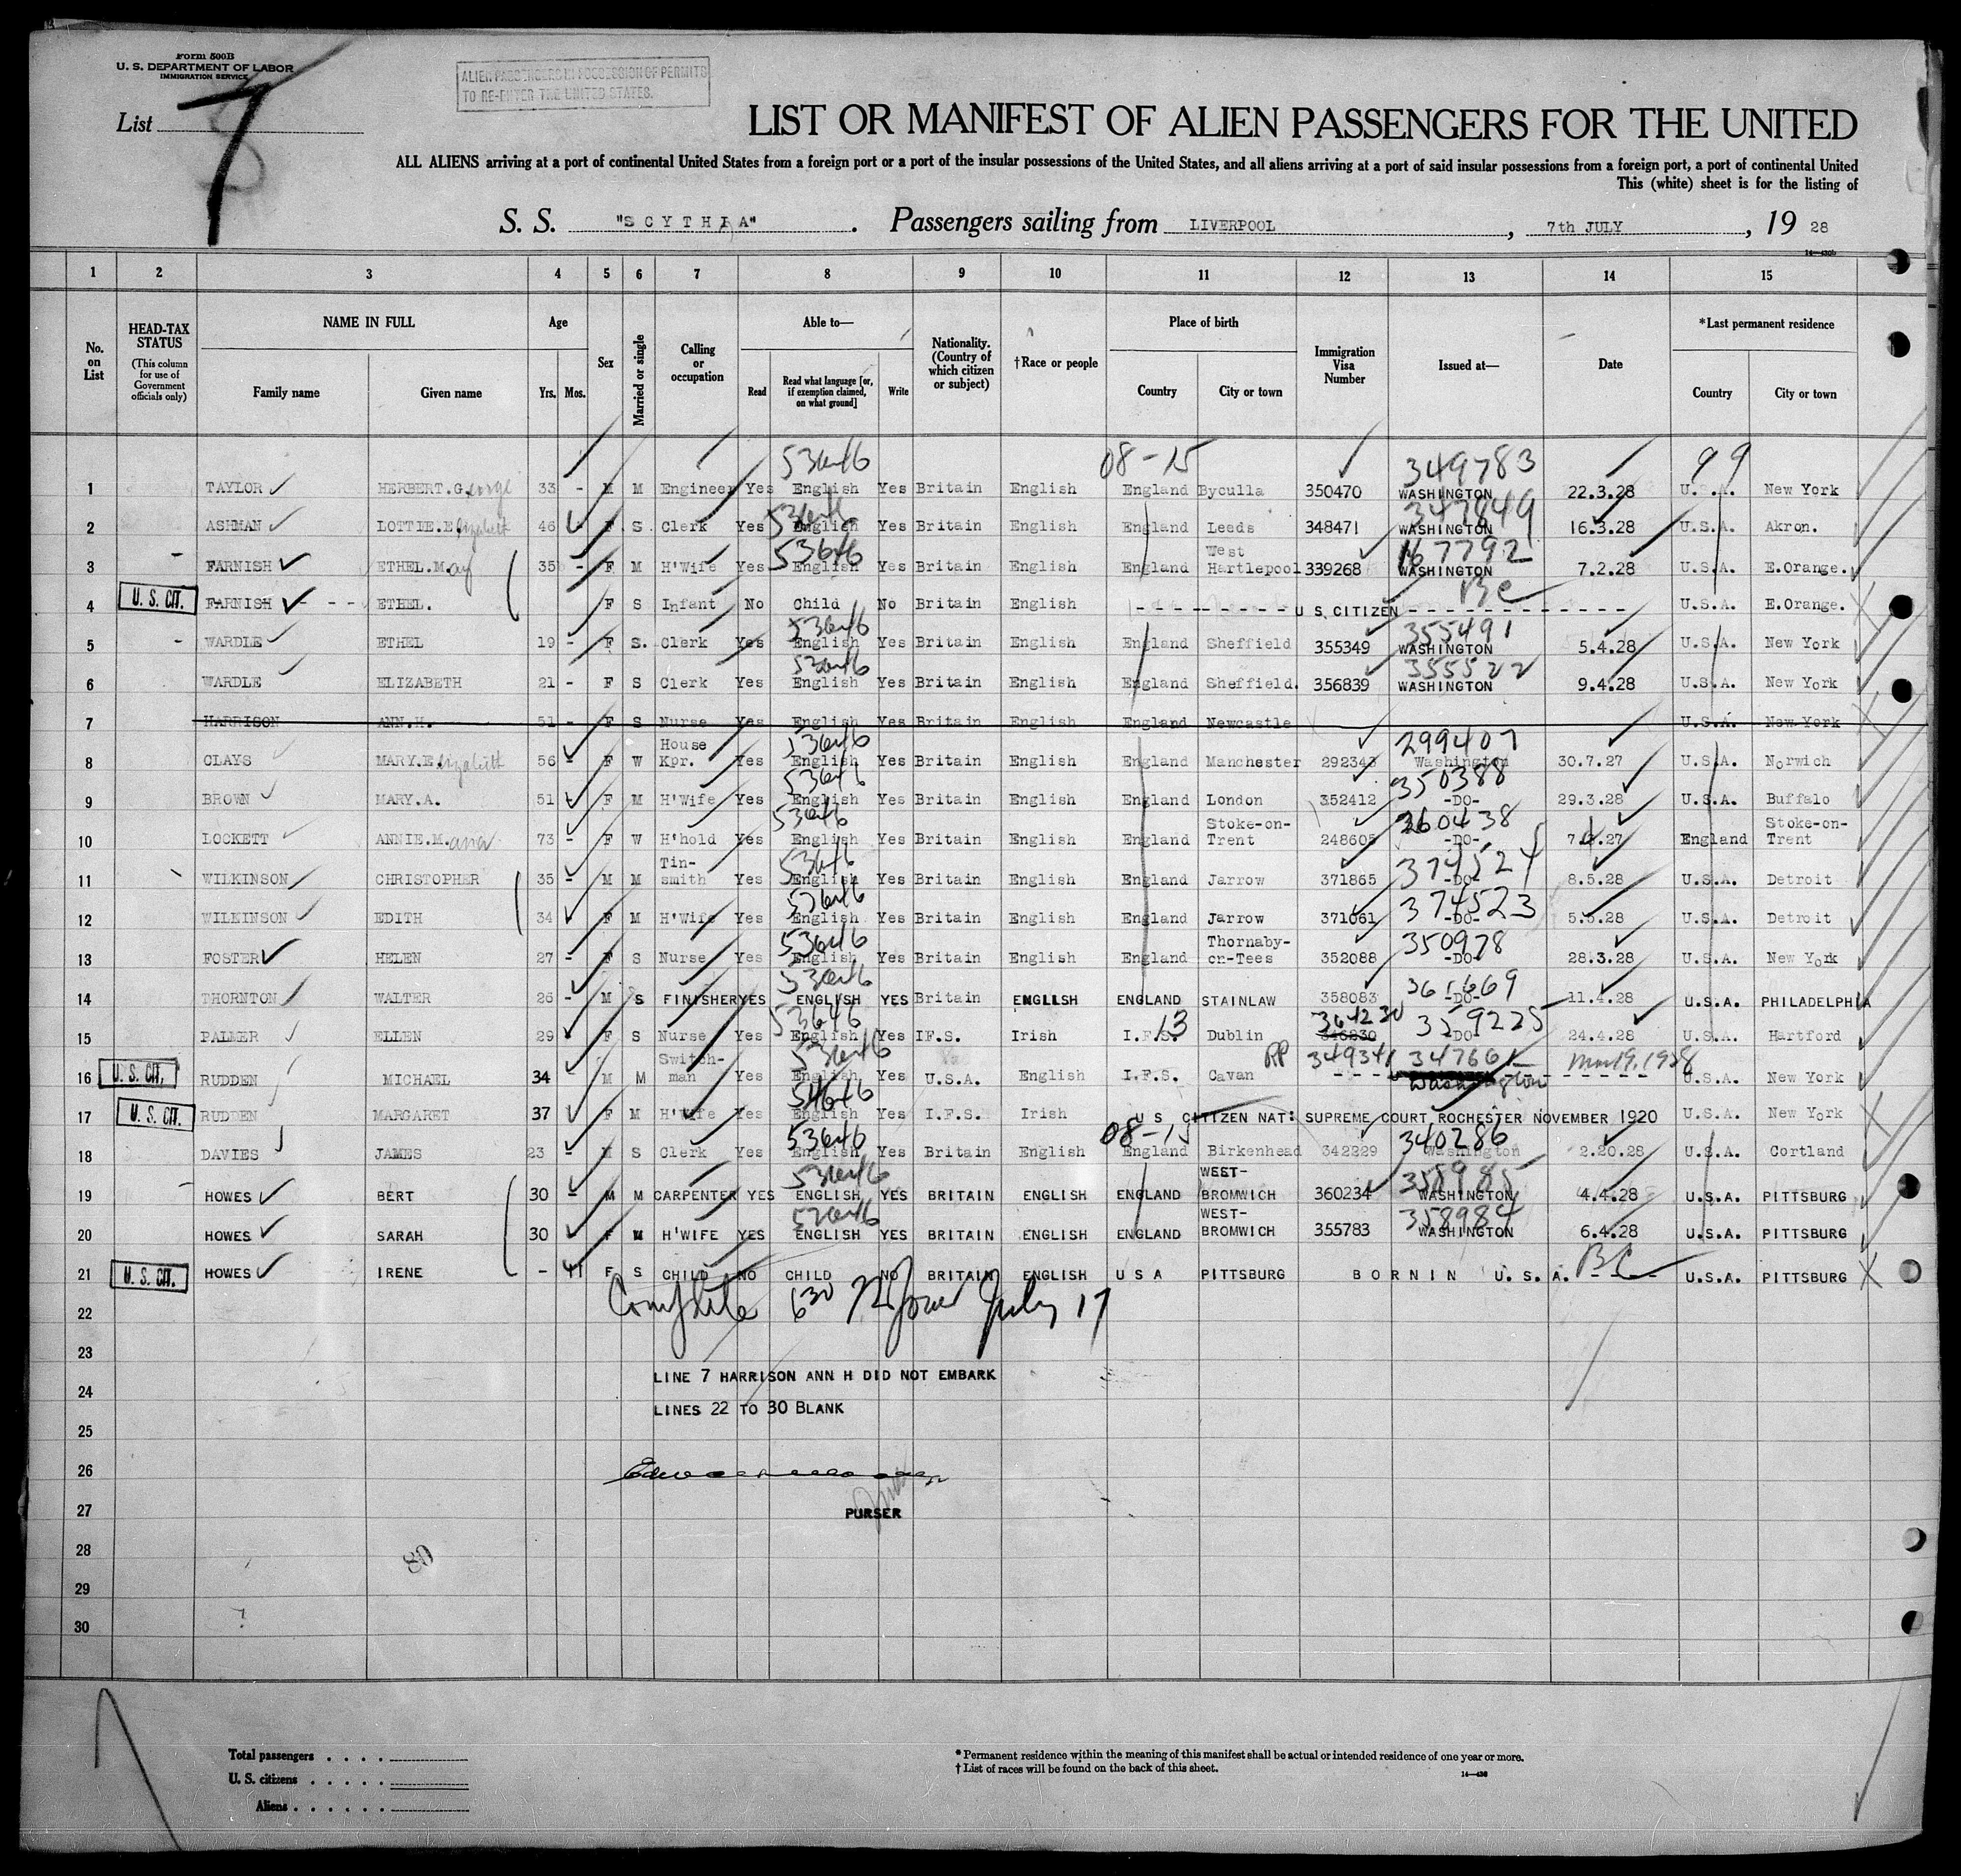 Form 500B
U. S. DEPARTMENT OF LABOR
IMMIGRATION SERVICE
ALIEN PASSENGERS IN POSSESSION OF PERMITS
TO RE-ENTER THE UNITED STATES.
List 7
LIST OR MANIFEST OF ALIEN PASSENGERS FOR THE UNITED
ALL ALIENS arriving at a port of continental United States from a foreign port or a port of the insular possessions of the United States, and all aliens arriving at a port of said insular possessions from a foreign port, a port of continental United
This (white) sheet is for the listing of
S. S. "SCYTHIA". Passengers sailing from LIVERPOOL, 7th JULY, 19 28
14—430b
1 2 3 4 5 6 7 8 9 10 11 12 13 14 15
No. on List
HEAD-TAX STATUS
(This column for use of Government officials only)
NAME IN FULL
Family name Given name
Age
Yrs. Mos.
Sex
Married or single
Calling or occupation
Able to—
Read Read what language [or, if exemption claimed, on what ground] Write
Nationality. (Country of which citizen or subject)
†Race or people
Place of birth
Country City or town
Immigration Visa Number
Issued at—
Date
*Last permanent residence
Country City or town
53646 08-15 349783 99
1 TAYLOR HERBERT.George 33 - M M Engineer Yes English Yes Britain English England Byculla 350470 WASHINGTON 22.3.28 U.S.A. New York
2 ASHMAN LOTTIE.Elizabeth 46 F S. Clerk Yes English Yes Britain English England Leeds 348471 WASHINGTON 16.3.28 U.S.A. Akron.
53646 West 167792
3 FARNISH ETHEL.May 35 - F M H'Wife Yes English Yes Britain English England Hartlepool 339268 WASHINGTON 7.2.28 U.S.A. E.Orange.
BC
4 U. S. CIT. FARNISH - - - ETHEL. F S Infant No Child No Britain English - - - - U S. CITIZEN - - - - U.S.A. E.Orange.
53646 355491
5 WARDLE ETHEL 19 - F S. Clerk Yes English Yes Britain English England Sheffield 355349 WASHINGTON 5.4.28 U.S.A. New York
53646 355522
6 WARDLE ELIZABETH 21 - F S Clerk Yes English Yes Britain English England Sheffield. 356839 WASHINGTON 9.4.28 U.S.A. New York
7 HARRISON ANN.H. 51 - F S Nurse Yes English Yes Britain English England Newcastle U.S.A. New York
House 53646 299407
8 OLAYS MARY.Elizabeth 56 - F W Kpr. Yes English Yes Britain English England Manchester 292343 Washington 30.7.27 U.S.A. Norwich
53646 350388
9 BROWN MARY.A. 51 - F M H'Wife Yes English Yes Britain English England London 352412 -DO- 29.3.28 U.S.A. Buffalo
53646 Stoke-on- 260438 Stoke-on-
10 LOCKETT ANNIE.M. 73 - F W H'hold Yes English Yes Britain English England Trent 248605 -DO- England Trent
Tin- 53646 374524
11 WILKINSON CHRISTOPHER 35 - M M smith Yes English Yes Britain English England Jarrow 371865 -DO- 8.5.28 U.S.A. Detroit
53646 374523
12 WILKINSON EDITH 34 F M H'Wife Yes English Yes Britain English England Jarrow 371061 -DO- 5.5.28 U.S.A. Detroit
53646 Thornaby- 350978
13 FOSTER HELEN 27 - F S Nurse Yes English Yes Britain English England on-Tees 352088 -DO- 28.3.28 U.S.A. New York
53646 361669
14 THORNTON WALTER 26 - M S FINISHER YES ENGLISH YES Britain ENGLISH ENGLAND STAINLAW 358083 -DO- 11.4.28 U.S.A. PHILADELPHIA
53646 13 364230 359225
15 PALMER ELLEN 29 - F S Nurse Yes English Yes IF.S. Irish I.F.S. Dublin 346230 -DO- 24.4.28 U.S.A. Hartford
Switch- 53646 349341 347661 Mar 19, 1928
16 U. S. CIT. RUDDEN MICHAEL 34 M M man Yes English Yes U.S.A. English I.F.S. Cavan Washington U.S.A. New York
54646
17 U. S. CIT. RUDDEN MARGARET 37 F M H'Wife Yes English Yes I.F.S. Irish U S CITIZEN NAT: SUPREME COURT ROCHESTER NOVEMBER 1920 U.S.A. New York
53646 08-15 340286
18 DAVIES JAMES 23 - M S Clerk Yes English Yes Britain English England Birkenhead 342229 Washington 2.20.28 U.S.A. Cortland
53646 WEST- 358985
19 HOWES BERT 30 - M M CARPENTER YES ENGLISH YES BRITAIN ENGLISH ENGLAND BROMWICH 360234 WASHINGTON 4.4.28 U.S.A. PITTSBURG
53646 WEST- 358984
20 HOWES SARAH 30 F M H'WIFE YES ENGLISH YES BRITAIN ENGLISH ENGLAND BROMWICH 355783 WASHINGTON 6.4.28 U.S.A. PITTSBURG
BC
21 U. S. CIT. HOWES IRENE - 11 F S CHILD NO CHILD NO BRITAIN ENGLISH U S A PITTSBURG B O R N I N U. S. A. - - - U.S.A. PITTSBURG
Complete 630 July 17
22
23
LINE 7 HARRISON ANN H DID NOT EMBARK
24
LINES 22 TO 30 BLANK
25
26
27
PURSER
28
80
29
30
Total passengers . . . .
U. S. citizens . . . . .
Aliens . . . . . .
* Permanent residence within the meaning of this manifest shall be actual or intended residence of one year or more.
† List of races will be found on the back of this sheet.
14—430